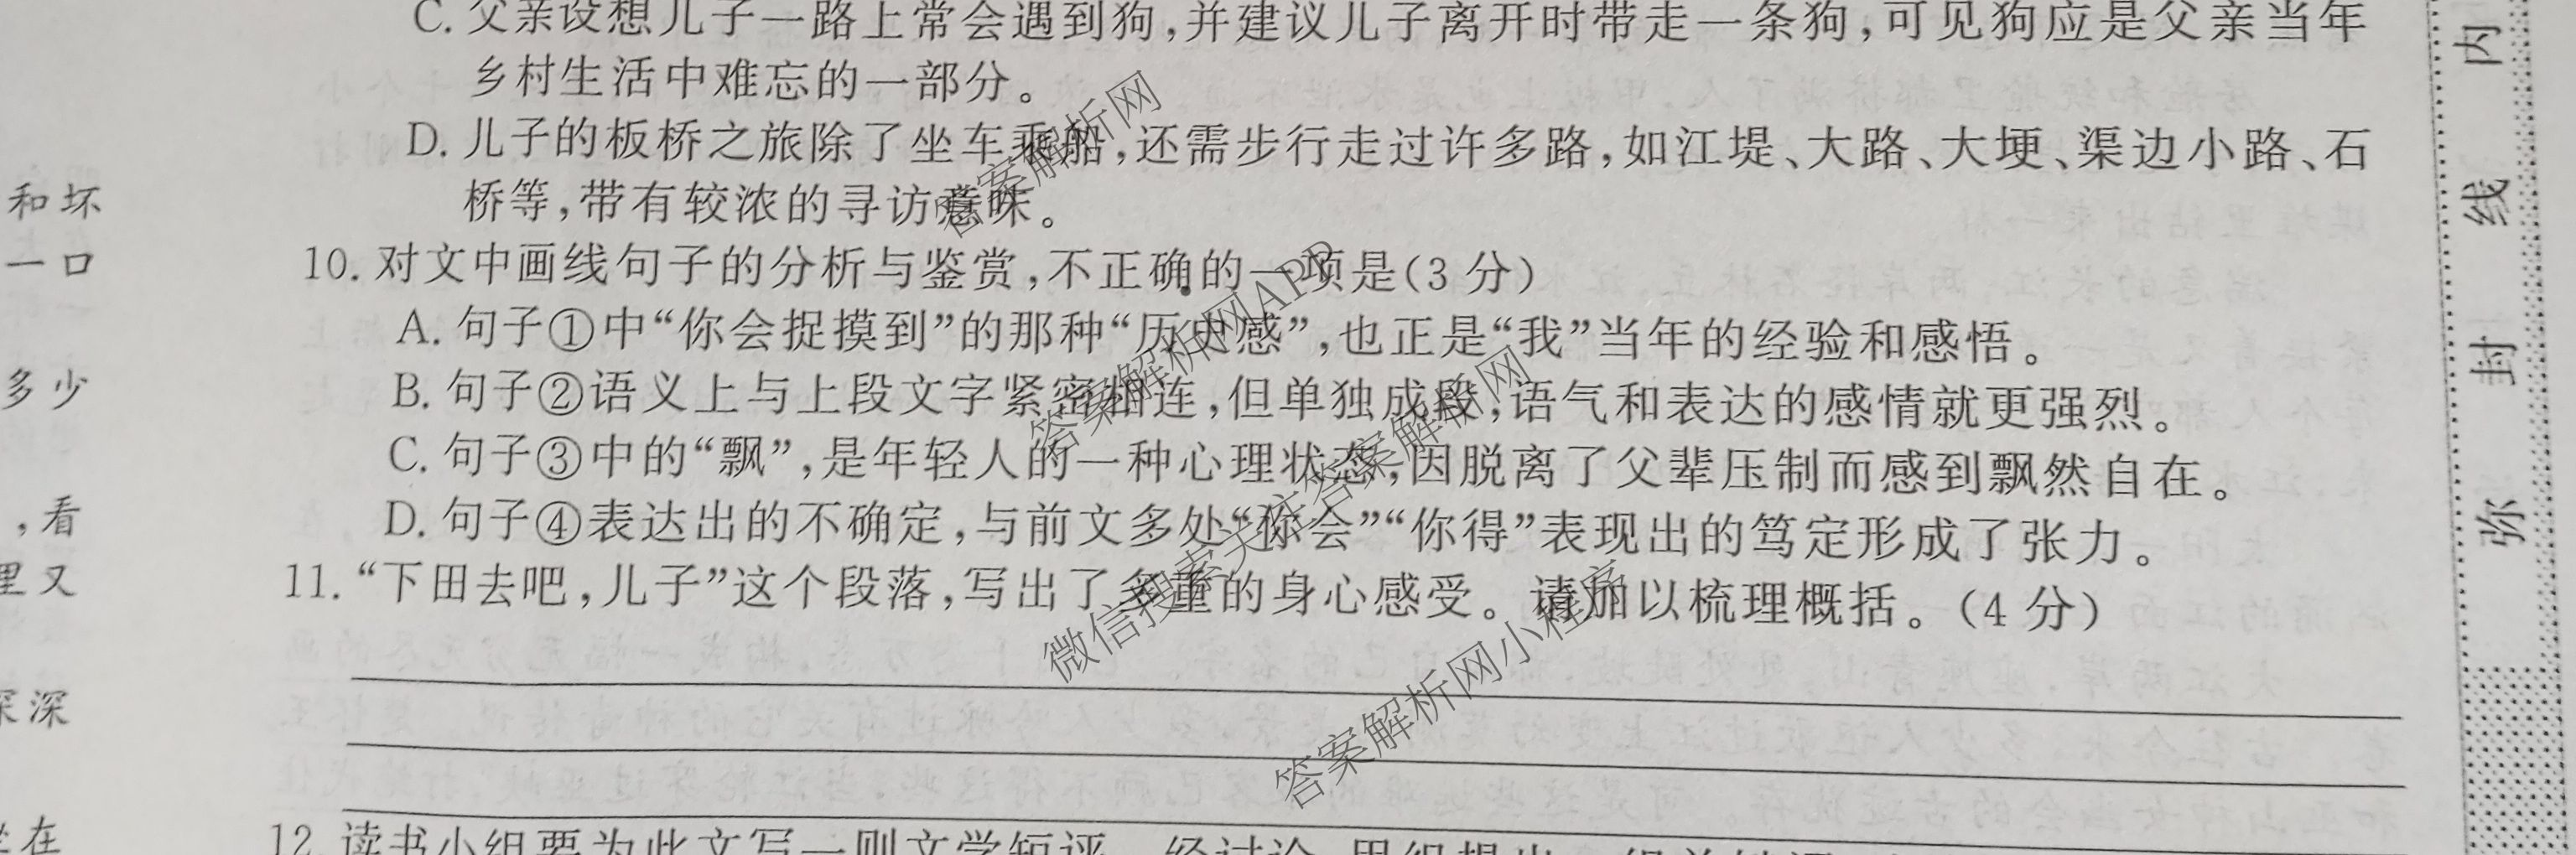 C. 父亲设想儿子一路上常会遇到狗,并建议儿子离开时带走一条狗,可见狗应是父亲当年
乡村生活中难忘的一部分。
D. 儿子的板桥之旅除了坐车乘船,还需步行走过许多路,如江堤、大路、大埂、渠边小路、石
桥等,带有较浓的寻访意味。
10. 对文中画线句子的分析与鉴赏,不正确的一项是(3 分)
A. 句子①中“你会捉摸到”的那种“历史感”,也正是“我”当年的经验和感悟。
B. 句子②语义上与上段文字紧密相连,但单独成段,语气和表达的感情就更强烈。
C. 句子③中的“飘”,是年轻人的一种心理状态,因脱离了父辈压制而感到飘然自在。
D. 句子④表达出的不确定,与前文多处“你会”“你得”表现出的笃定形成了张力。
11. “下田去吧,儿子”这个段落,写出了多重的身心感受。请加以梳理概括。(4 分)
12. 读书小组要为此文写一则文学短评。经讨论,甲组提出一组关键词
和坏
一口
多少
,看
里又
深深
在
内
线
封
弥
答案解析网
答案解析网APP
微信搜索关注答案解析网
答案解析网小程序